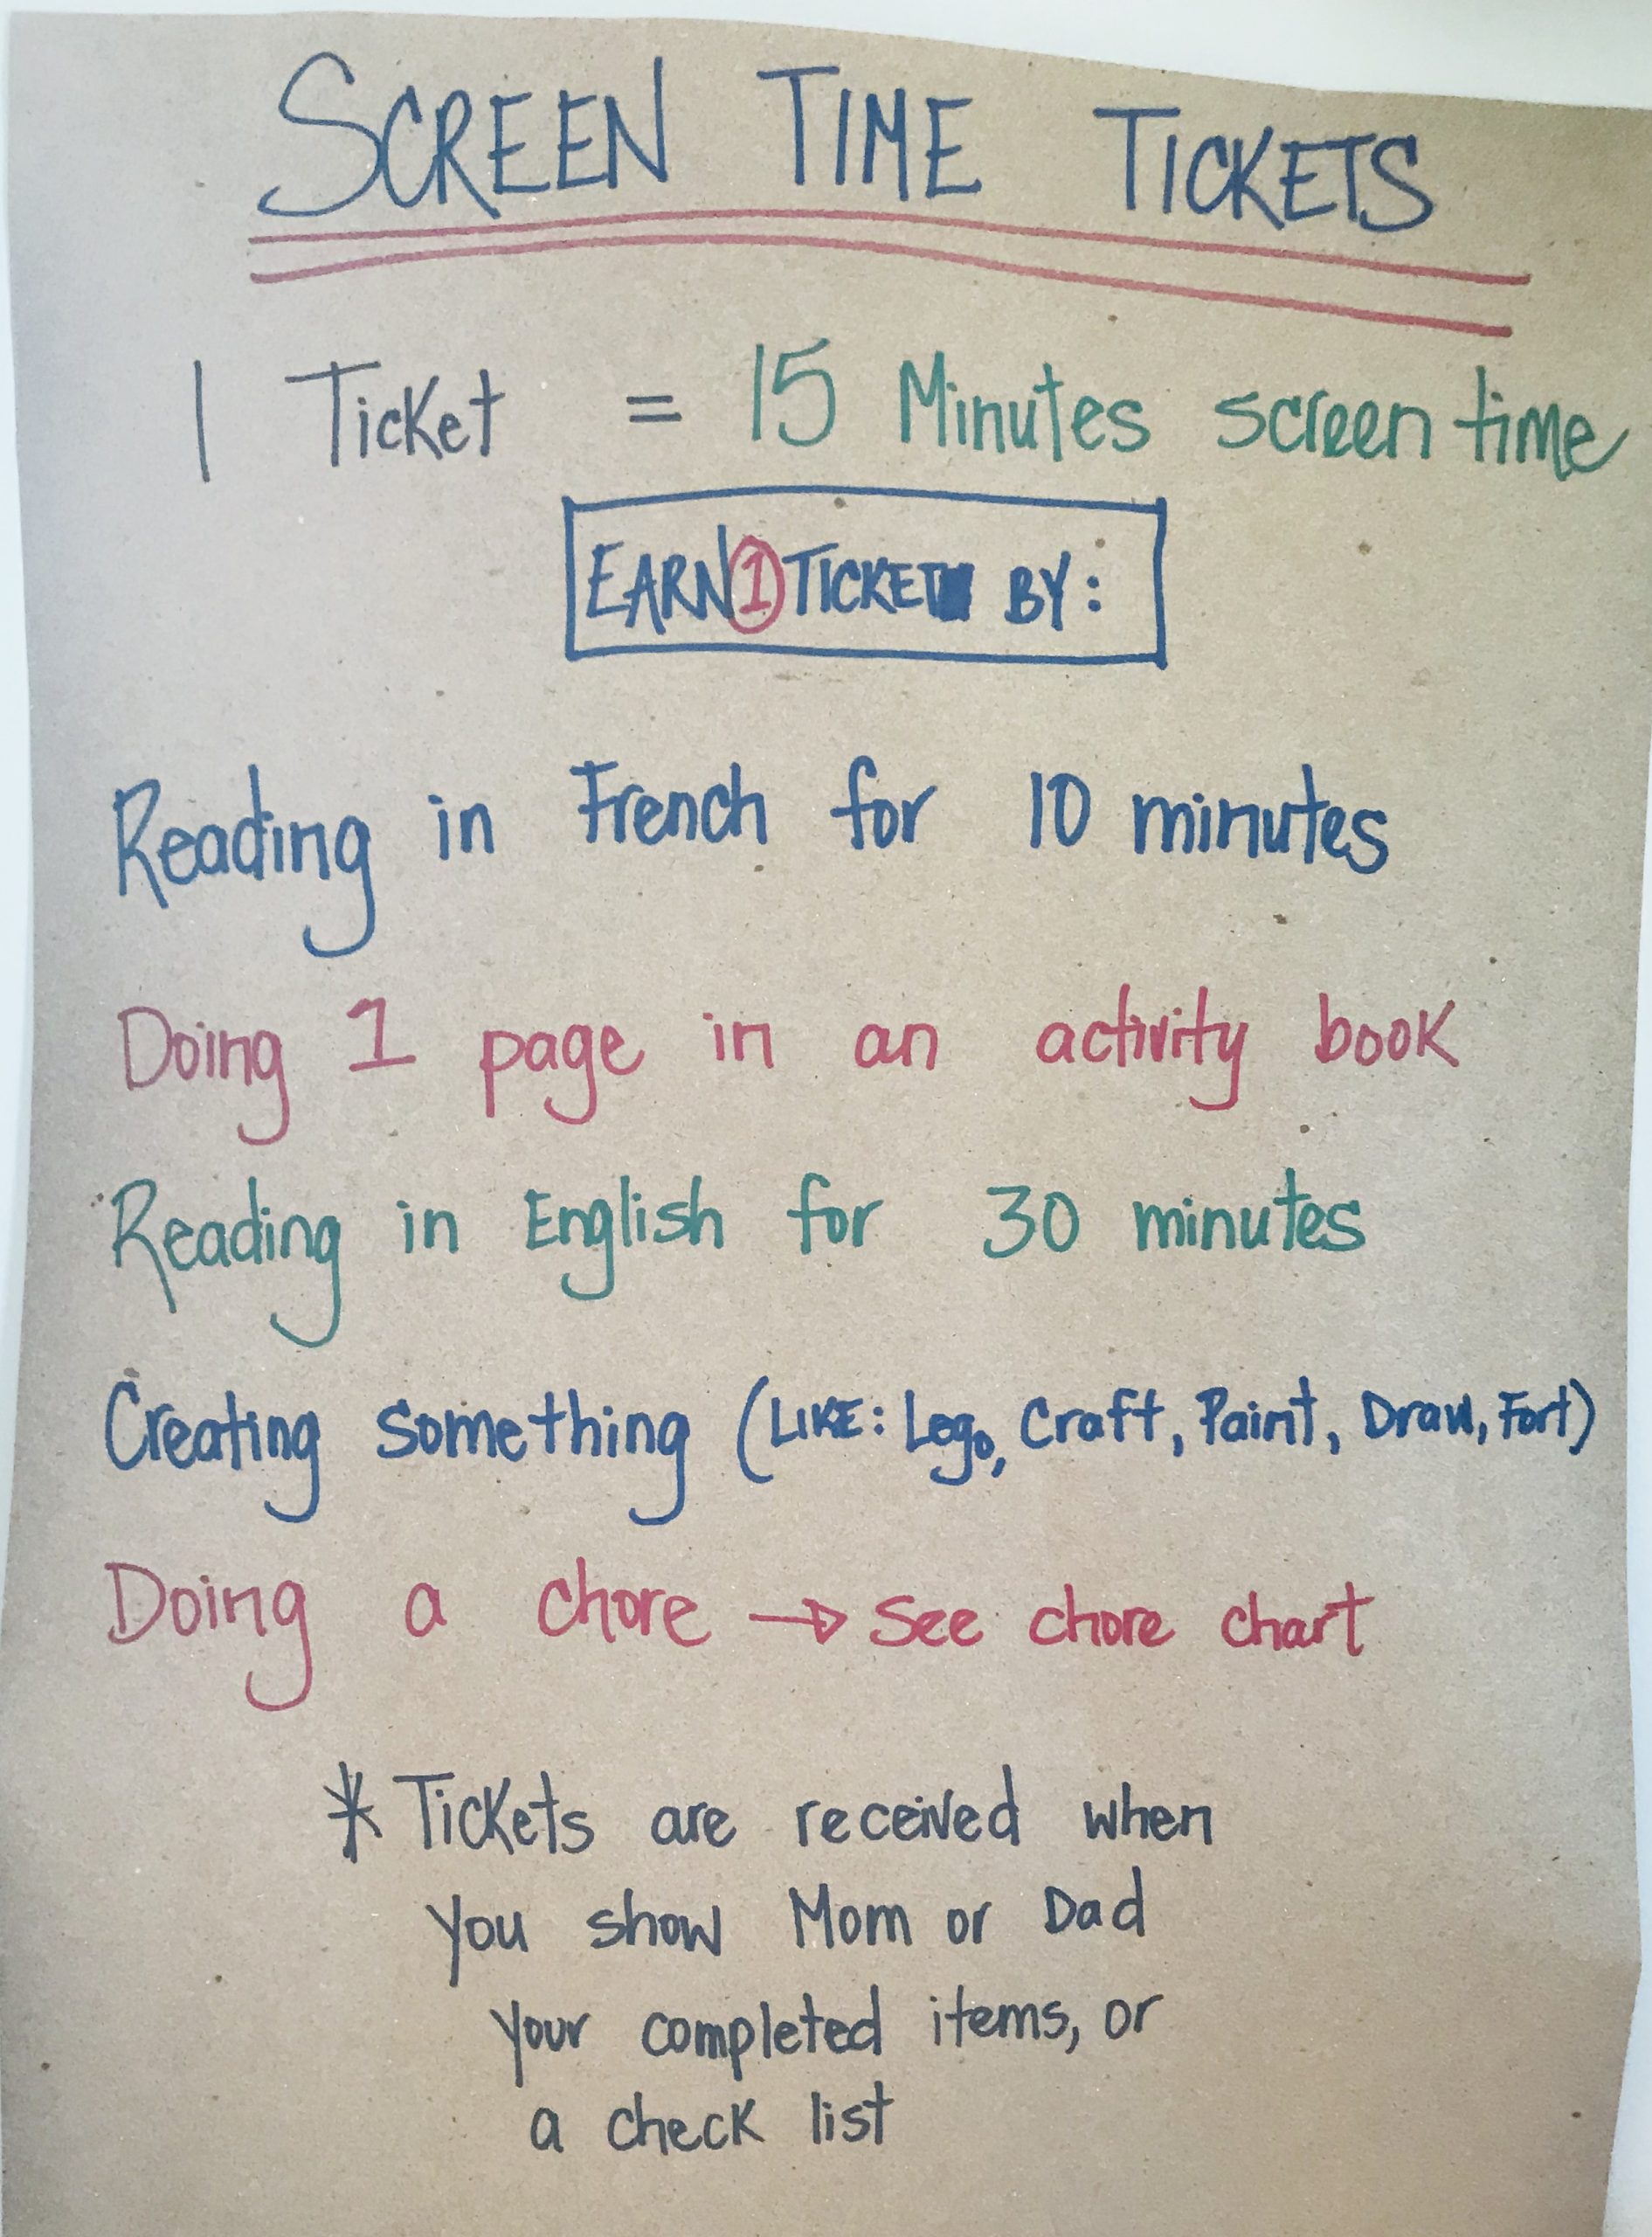 SCREEN TIME TICKETS
1 Ticket = 15 Minutes screen time
EARN 1 TICKET BY:
Reading in French for 10 minutes
Doing 1 page in an activity book
Reading in English for 30 minutes
Creating something (LIKE: Lego, Craft, Paint, Draw, Fort)
Doing a chore → See chore chart
* Tickets are received when
you show Mom or Dad
your completed items, or
a check list